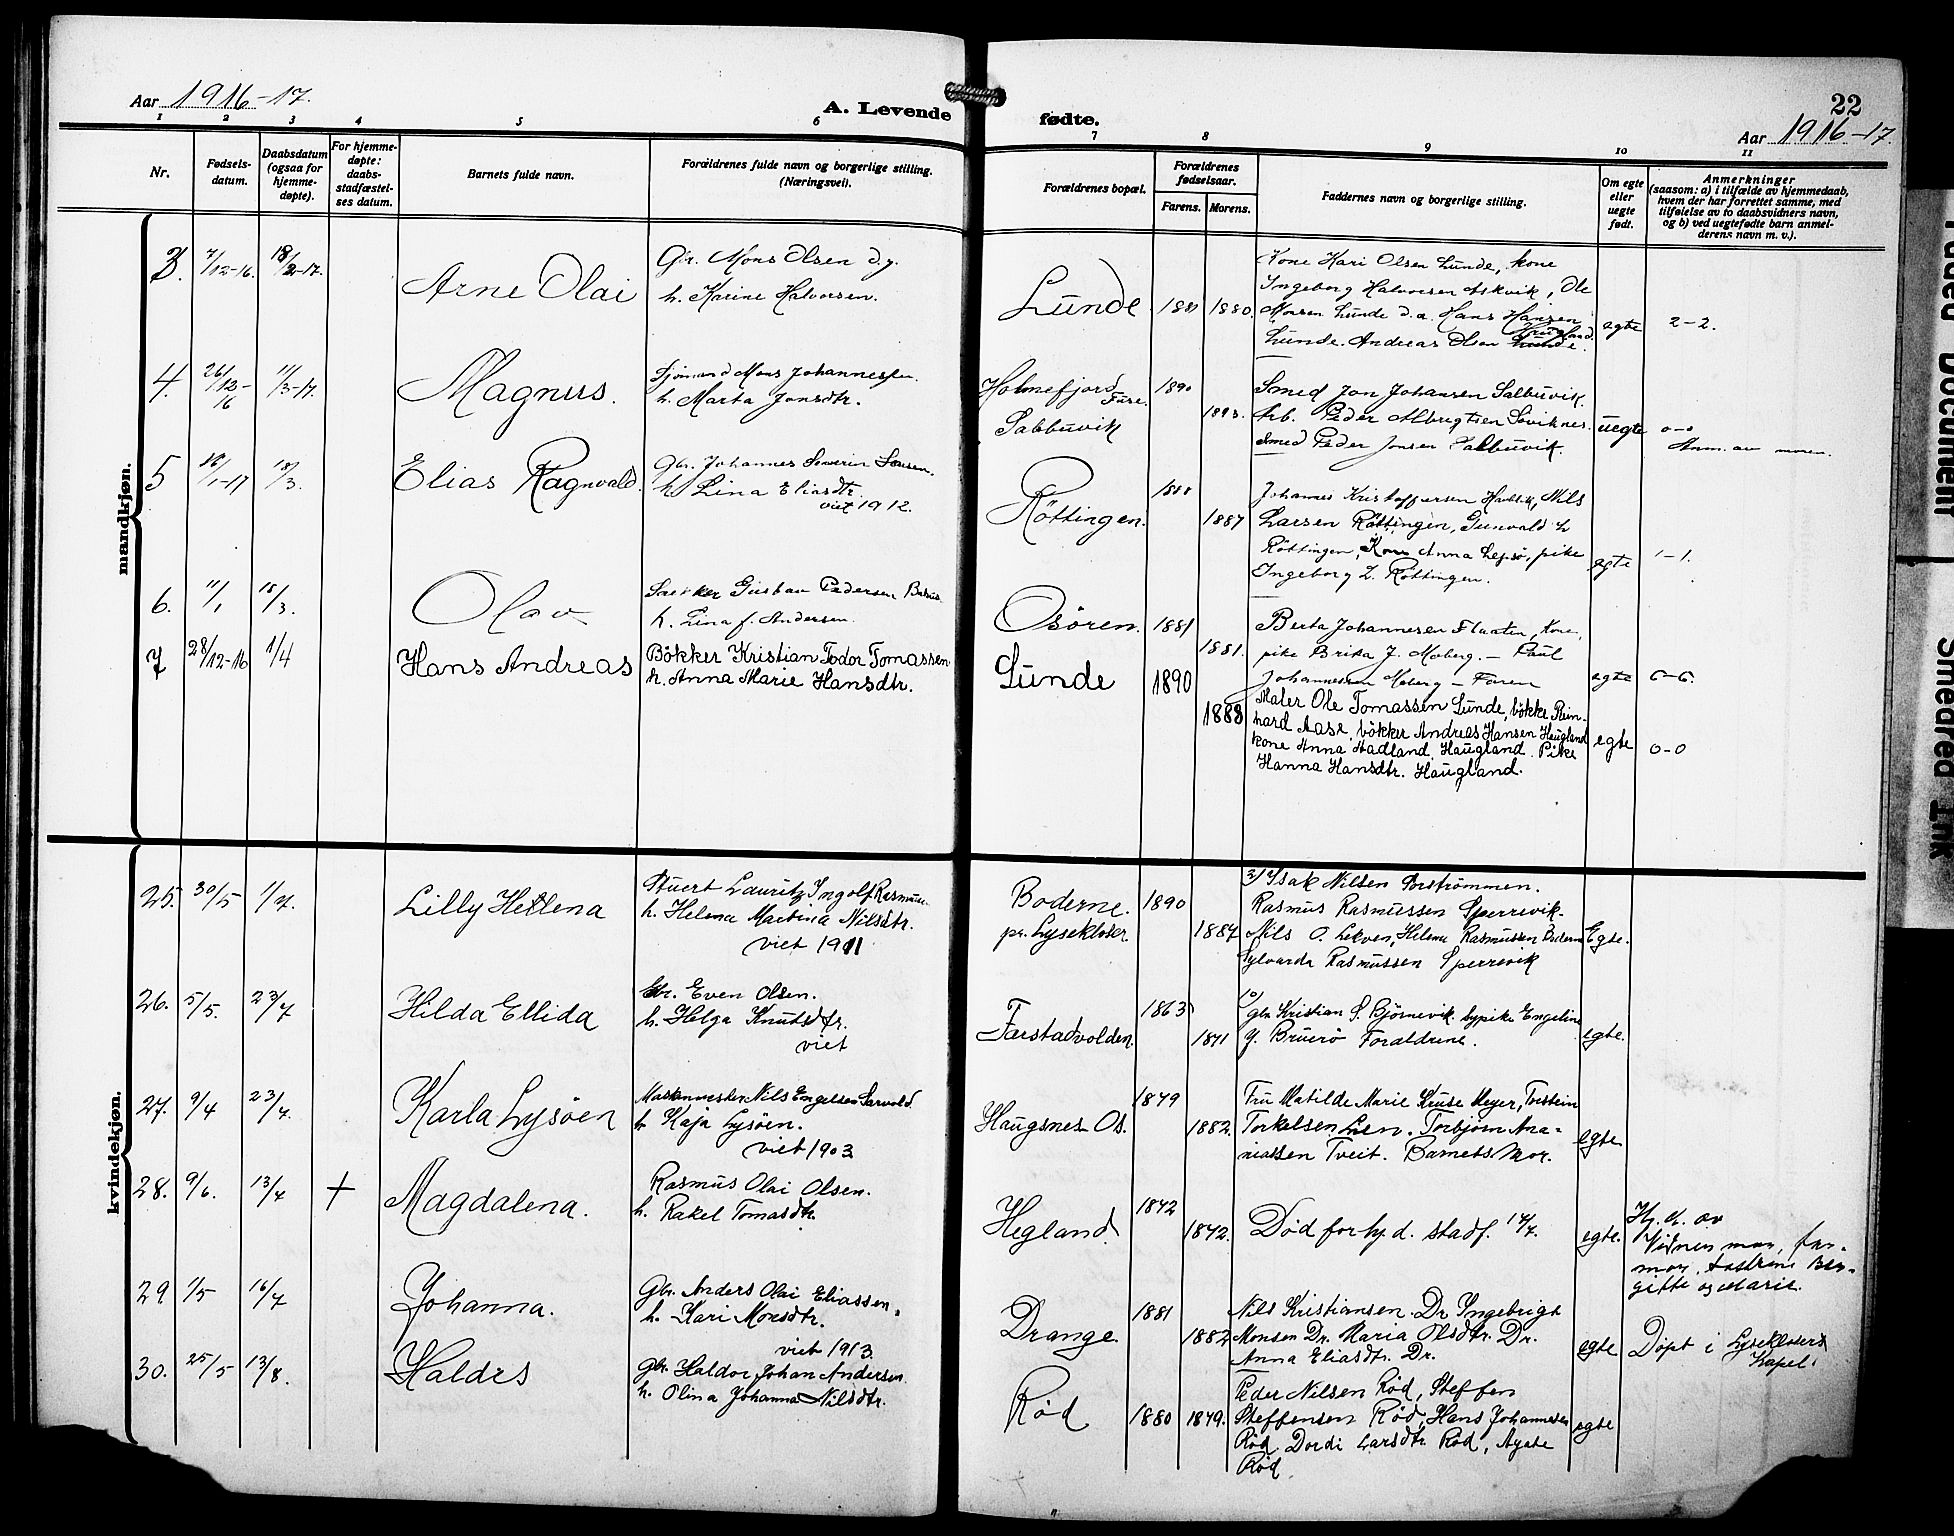 Aar 1916-17.
A. Levende
fødte.
22
Aar 1916-17.
1 2 3 4 5 6 7 8 9 10 11
Nr.
Fødsels-
datum.
Daabsdatum
(ogsaa for
hjemme-
døpte).
For hjemme-
døpte:
daabs-
stadfæstel-
ses datum.
Barnets fulde navn.
Forældrenes fulde navn og borgerlige stilling.
(Næringsvei).
Forældrenes bopæl.
Forældrenes
fødselsaar.
Farens. Morens.
Faddernes navn og borgerlige stilling.
Om egte
eller
uegte
født.
Anmerkninger
(saasom: a) i tilfælde av hjemmedaab,
hvem der har forrettet samme, med
tilføielse av to daabsvidners navn,
og b) ved uegtefødte barn anmel-
derens navn m. v.).
mandkjøn.
3. 7/12-16. 18/2-17. Arne Olai
Gr. Mons Olsen d.y.
h. Karine Halvorsen.
Lunde 1881 1880.
Kone Hari Olsen Lunde, kone
Ingeborg Halvorsen Askvik, Ole
Monsen Lunde d.a. Hans Hansen
Haugland
Lunde. Andreas Olsen Lunde.
egte 2-2.
4. 26/12-16 11/3-17. Magnus.
Sjömand Mons Johannessen.
h. Marta Jonsdtr.
Holmefjord Fuse. 1890
Salbuvik 1893.
Smed Jon Johansen Salbuvik.
Arb. Peder Albregtsen Söviknes.
Smed Peder Jonsen Salbuvik.
uegte 0-0
Anm. av moren.
5 16/1-17 18/3. Elias Ragnvald.
Gbr. Johannes Severin Larsen.
h. Lina Eliasdtr.
viet 1912.
Röttingen. 1888 1887
Johannes Kristoffersen, Nils
Larsen Röttingen, Gunvald L
Röttingen, Kone Anna Lepsö, pike
Ingeborg L. Röttingen.
egte 1-1.
6. 11/1 18/3. Olav
Gustav Pedersen
h. Lina f. Andersen.
Osören. 1881 1881.
Berta Johannesen Flaaten, Kone,
pike Brika J. Moberg. — Paul
Johannessen Moberg — Faren
egte 6-6.
7 28/12-16 1/4 Hans Andreas
Bökker Kristian Todor Tomassen
h. Anna Marie Hansdtr.
Lunde 1890 1888
Maler Ole Tomassen Lunde, bökker Rein-
hard Aase, bökker Andreas Hansen Haugland
kone Anna Hadland, Haugland. Pike
Hanna Hansdtr. Haugland.
egte 0-0
kvindekjøn.
25. 30/5 1/7. Lilly Hellena
Stuert Lauritz Ingolf Rasmussen
h. Helena Martina Nilsdtr.
viet 1911
Boderne. 1890
pr. Lysekloster. 1887
3/ Isak Nilsen Dströmmen.
Rasmus Rasmussen Sperrevik-
Nils O. Lekven, Helena Rasmussen Boderne
Sylvarda Rasmussen Sperrevik
Egte.
26. 5/5. 23/7 Hilda Ellida
Gbr. Even Olsen.
h. Helga Knutsdtr.
viet
Farstadvolden. 1863 1871
gbr Kristian S. Bjørnevik. sypike Engeline
Y. Bruerö Forældrene.
egte.
27. 9/4 23/7. Karla Lysøen
Maskinmester Nils Engelsen Sarvold
h Kaja Lysøen.
viet 1903
Haugsnes Os. 1879 1882.
Fru Matilde Marie Kruse Meyer, Torstein
Torkelsen Lien. Torbjørn Ana-
niassen Tveit. Barnets Mor.
egte
28. 9/6. 13/7 + Magdalena.
Rasmus Olai Olsen.
h. Rakel Tomasdtr.
Hegland 1872 1872.
Død for hj. d. stadf. 14/7.
egte.
Hj. d. av
Vidner mor, far-
mor, søstrene Bir-
gitte og Marie.
29 1/5 16/7 Johanna.
Gbr. Anders Olai Eliassen.
h. Kari Monsdtr.
viet 1913
Drange 1881 1882
Nils Kristiansen. Dr. Ingebrigt
Monsen Dr. Maria Olsdtr. Dr.
Anna Eliasdtr. Dr.
egte
Døpt i Lyseklosters
Kapel.
30. 25/5 13/8. Haldis
Gbr. Haldor Johan Andersen.
h. Olina Johanna Nilsdtr.
Rød 1880 1879.
Peder Nilsen Rød, Steffen
Steffensen Rød, Hans Johannesen
Rød Dordi Larsdtr Rød, Agate
Rød.
egte
Faded Document
Smeared Ink